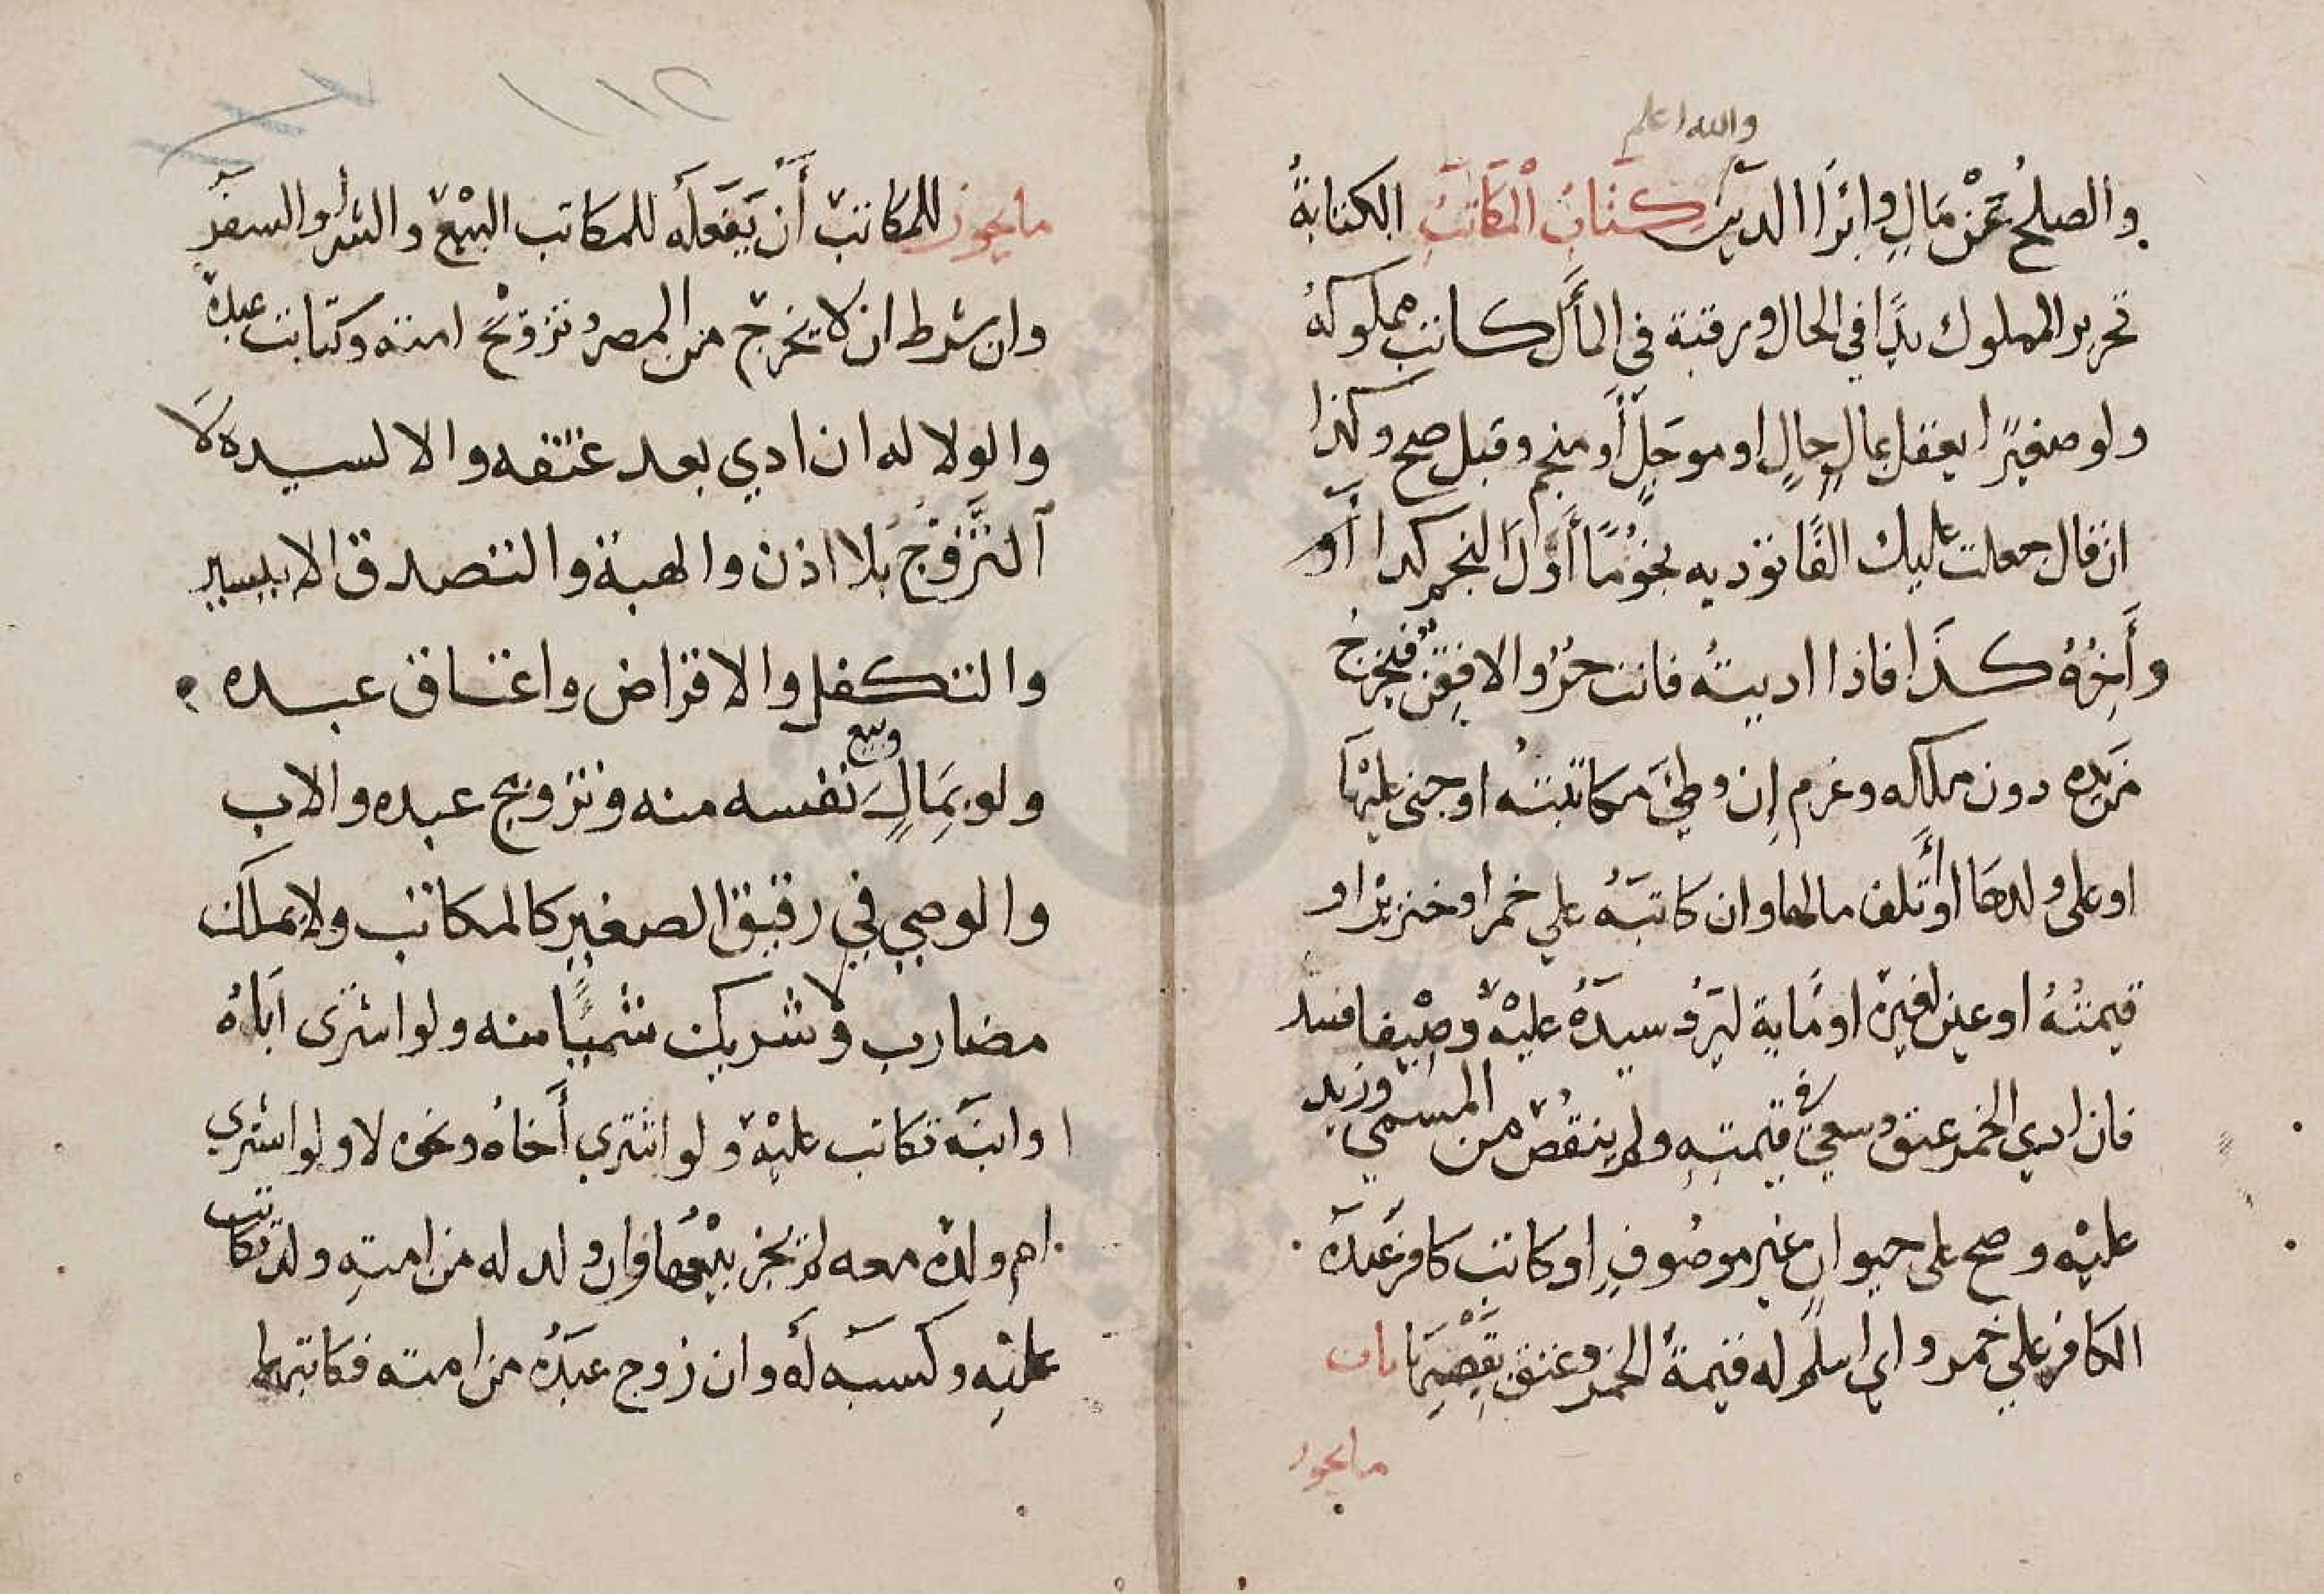 والله اعلم
والصلحُ عَنْ مَالٍ وابْرَا الدين كتابُ المكاتَبِ الكتابةُ
تحرير المملوك يدًا في الحال ورقبة في المآل كاتب مملوكهُ
ولو صغيرًا يعقل بمالٍ حالٍ او موجلٍ أو منجم وقبل صح وكذا
ان قال جعلت عليك الفًا توديه نجومًا أوّل النجم كذا أو
وأخرُهُ كذا فاذا اديتهُ فانت حرٌ والا فقنٌ فيخرج
من يده دون ملكه وغرم إن وطئ مكاتبتهُ او جنى عليها
او على ولدها او أتلف مالها وان كاتبهُ علي خمر او خنزير او
قيمتهُ او عين لغيره او ماية ليرد سيدهُ عليه وصيفا فسد
فان ادي الخمر عتق وسعي في قيمتهِ ولم ينقص من المسمي وزيد
عليه وصح على حيوان غير موصُوفٍ او كاتب كافر عبده
الكافر علي خمر واي اسلم له قيمة الخمر وعتق بقبضها باب
ما يجوز
ما يجوز للمكاتب أن يفعله للمكاتب البيع والشرا والسفر
وان شرط ان لا يخرج من المصر وتزويج امته وكتابت عبده
والولا له ان ادي بعد عتقه والا لسيده لا
التزوج بلا اذن والهبة والتصدق الا بيسير
والتكفل والاقراض واعتاق عبده
ولو بمالٍ وبيع نفسه منه وتزويج عبده والاب
والوصي في رقيق الصغير كالمكاتب ولا يملك
مضارب ولا شريك شيًا منه ولو اشترى اباهُ
او ابنه تكاتب عليه ولو اشتري أخاهُ ونحوه لا ولو اشتري
ام ولده معه لم يجز بيعها وان ولد له من امتهِ ولد تكاتب
عليه وكسبه لهُ وان زوج عبدهُ من امته فكاتبهما